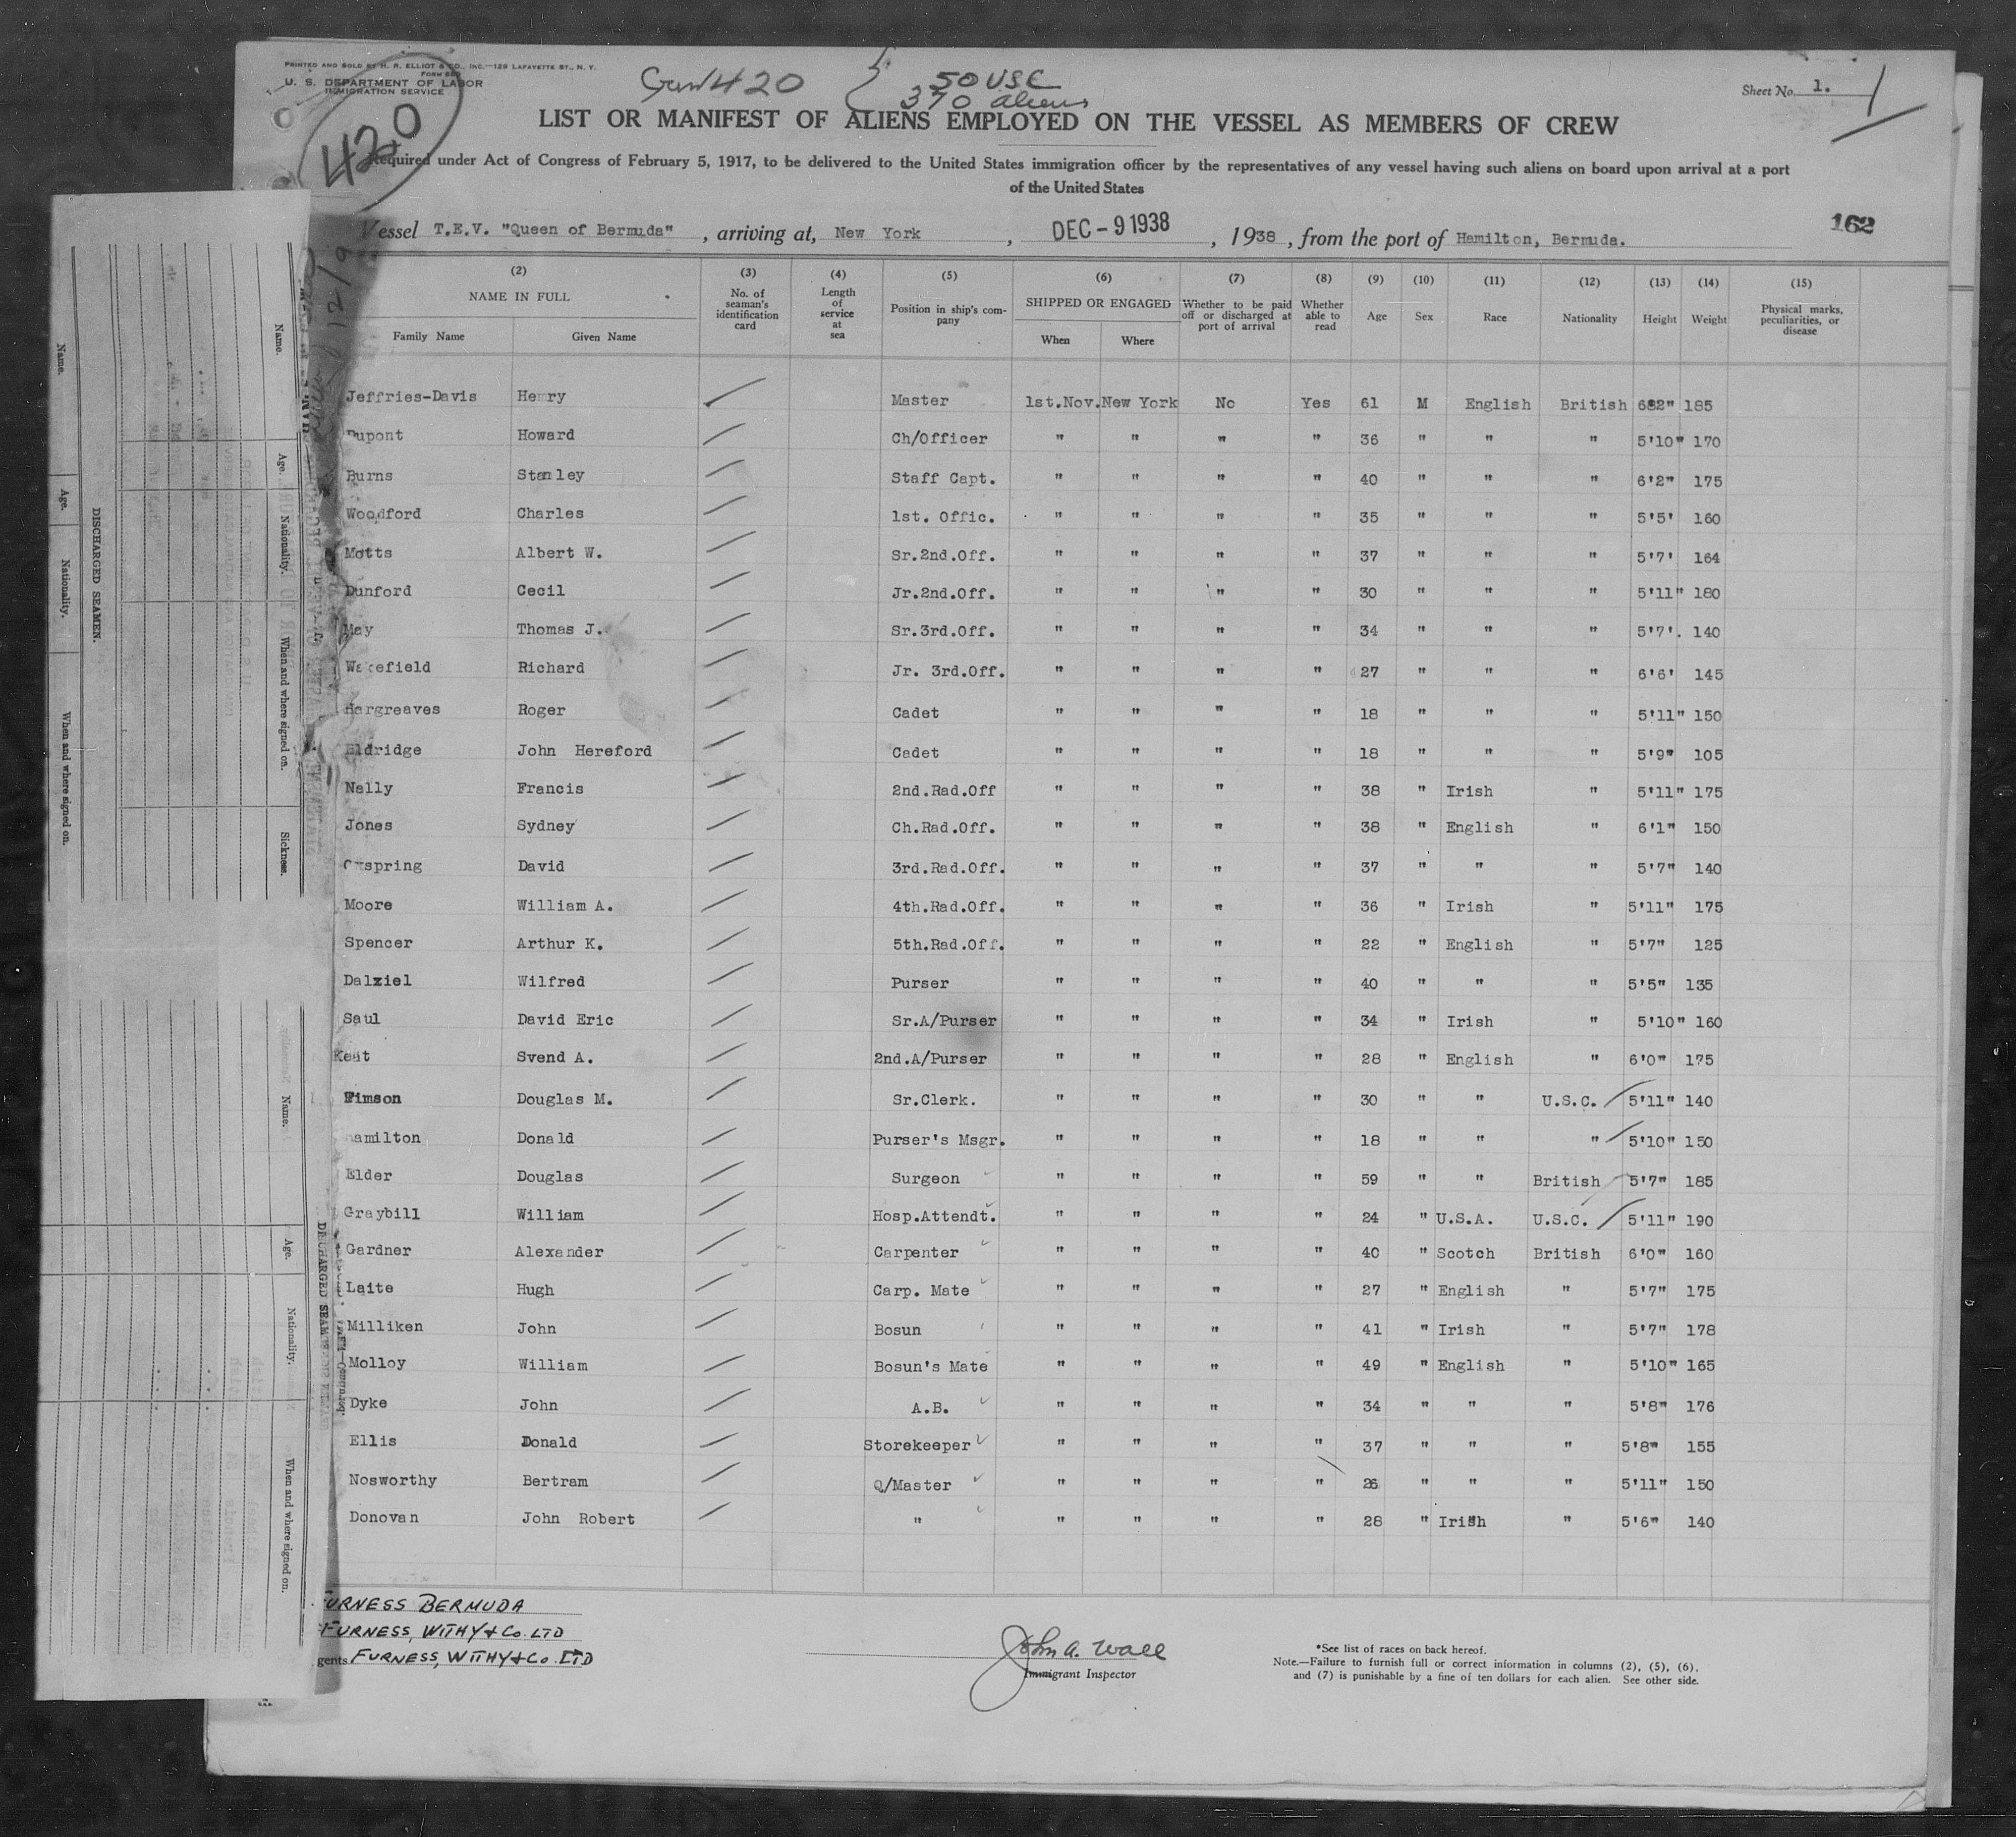 PRINTED AND SOLD BY H. R. ELLIOT & CO., INC.—129 LAFAYETTE ST., N. Y.
U. S. DEPARTMENT OF LABOR
IMMIGRATION SERVICE
420
420
50 USC
370 aliens
Sheet No. 1.
1
LIST OR MANIFEST OF ALIENS EMPLOYED ON THE VESSEL AS MEMBERS OF CREW
Required under Act of Congress of February 5, 1917, to be delivered to the United States immigration officer by the representatives of any vessel having such aliens on board upon arrival at a port
of the United States
Vessel T.E.V. "Queen of Bermuda", arriving at, New York, DEC - 9 1938, 1938, from the port of Hamilton, Bermuda.
162
12/9
(2) (3) (4) (5) (6) (7) (8) (9) (10) (11) (12) (13) (14) (15)
NAME IN FULL
Family Name Given Name
No. of seaman's identification card
Length of service at sea
Position in ship's company
SHIPPED OR ENGAGED
When Where
Whether to be paid off or discharged at port of arrival
Whether able to read
Age Sex Race Nationality Height Weight
Physical marks, peculiarities, or disease
Jeffries-Davis Henry Master 1st.Nov. New York No Yes 61 M English British 185
Dupont Howard Ch/Officer " " " " 36 " " " 5'10" 170
Burns Stanley Staff Capt. " " " " 40 " " " 6'2" 175
Woodford Charles 1st. Offic. " " " " 35 " " " 5'5' 160
Motts Albert W. Sr.2nd.Off. " " " " 37 " " " 5'7' 164
Dunford Cecil Jr.2nd.Off. " " " " 30 " " " 5'11" 180
May Thomas J. Sr.3rd.Off. " " " " 34 " " " 5'7'. 140
Wakefield Richard Jr. 3rd.Off. " " " " 27 " " " 6'6' 145
Hargreaves Roger Cadet " " " " 18 " " " 5'11" 150
Eldridge John Hereford Cadet " " " " 18 " " " 5'9" 105
Nelly Francis 2nd.Rad.Off " " " " 38 " Irish " 5'11" 175
Jones Sydney Ch.Rad.Off. " " " " 38 " English " 6'1" 150
David 3rd.Rad.Off. " " " " 37 " " " 5'7" 140
Moore William A. 4th.Rad.Off. " " " " 36 " Irish " 5'11" 175
Spencer Arthur K. 5th.Rad.Off. " " " " 22 " English " 5'7" 125
Dalziel Wilfred Purser " " " " 40 " " " 5'5" 135
Saul David Eric Sr.A/Purser " " " " 34 " Irish " 5'10" 160
Svend A. 2nd.A/Purser " " " " 28 " English " 6'0" 175
Douglas M. Sr.Clerk. " " " " 30 " " U.S.C. 5'11" 140
Hamilton Donald Purser's Msgr. " " " " 18 " " " 5'10" 150
Elder Douglas Surgeon " " " " 59 " " British 5'7" 185
Graybill William Hosp.Attendt. " " " " 24 " U.S.A. U.S.C. 5'11" 190
Gardner Alexander Carpenter " " " " 40 " Scotch British 6'0" 160
Laite Hugh Carp. Mate " " " " 27 " English " 5'7" 175
Milliken John Bosun " " " " 41 " Irish " 5'7" 178
Molloy William Bosun's Mate " " " " 49 " English " 5'10" 165
Dyke John A.B. " " " " 34 " " " 5'8" 176
Ellis Donald Storekeeper " " " " 37 " " " 5'8" 155
Nosworthy Bertram Q/Master " " " " 26 " " " 5'11" 150
Donovan John Robert " " " " " 28 " Irish " 5'6" 140
FURNESS BERMUDA
FURNESS, WITHY & Co. LTD
gents FURNESS, WITHY & Co. LTD
John A. Wall
Immigrant Inspector
*See list of races on back hereof.
Note.—Failure to furnish full or correct information in columns (2), (5), (6),
and (7) is punishable by a fine of ten dollars for each alien. See other side.
Name.
Age.
Nationality.
When and where signed on.
DISCHARGED SEAMEN.
Name.
Age.
Nationality.
When and where signed on.
Sickness.
Name.
Age.
Nationality.
When and where signed on.